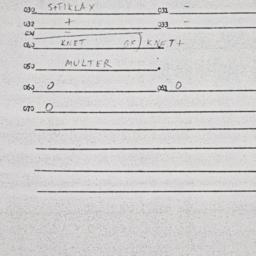 030 S+TIKLAX 031 -
032 + 033 -
040 KNET KNET+
050 MULTER :
060 0 061 0
070 0